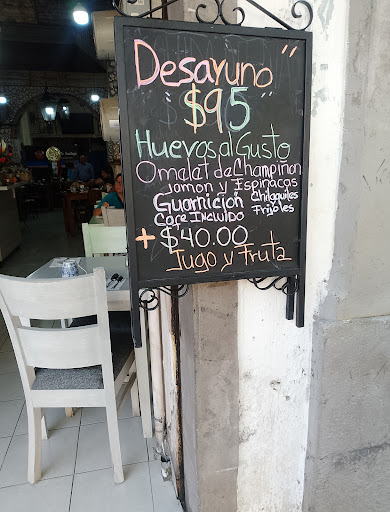 Desayuno"
"$95"
Huevos al Gusto
Omalet de Champiñon
Jamon y Espinacas
Guarnicion Chilaquiles
Cafe Incluido Frijoles
+ $40.00
Jugo y Fruta